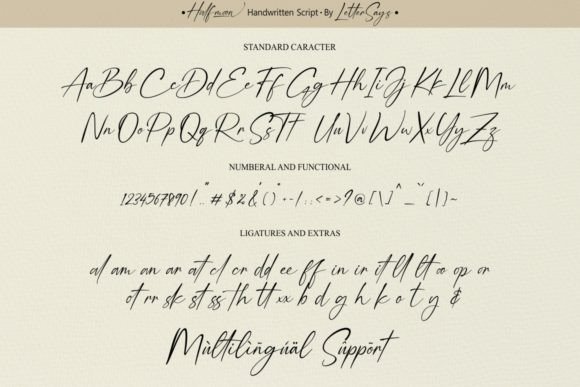 • Halfmoon Handwritten Script • By LetterSays •
STANDARD CARACTER
AaBbCcDdEeFfGgHhIiJjKkLlMm
NnOoPpQqRrSsTt UuVvWwXxYyZz
NUMBERAL AND FUNCTIONAL
1234567890!.,"#$%&'()*+-/:;<=>?@[\]^_˘{|}~
LIGATURES AND EXTRAS
al am an ar at cl cr dd ee ff in ir it ll lt oo op or
ot rr sk st ss th tt xx b d g h k o t y &
Mùltilingúäl Sûppört